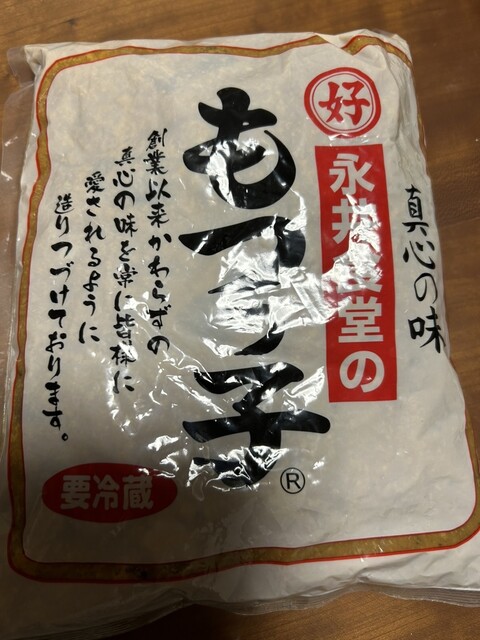 真心の味
好
永井食堂の
もつっ子®
創業以来かわらずの
真心の味を常に皆様に
愛されるように
造りつづけております。
要冷蔵